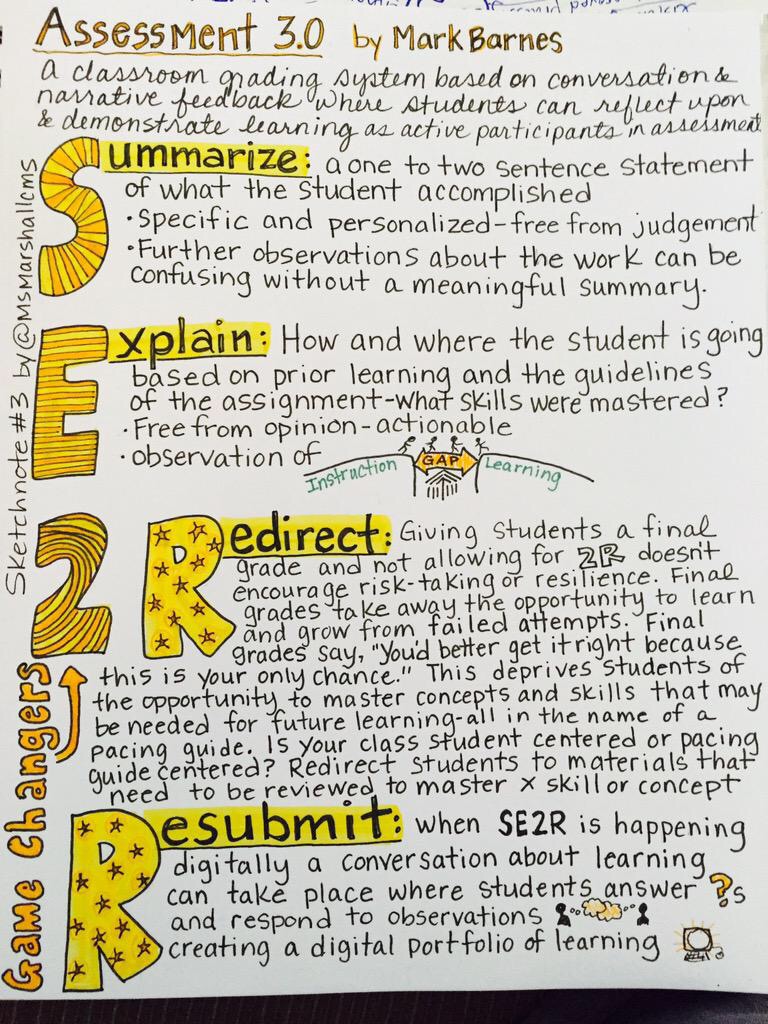 Assessment 3.0 by Mark Barnes
A classroom grading system based on conversation &
narrative feedback where students can reflect upon
& demonstrate learning as active participants in assessment
Summarize: a one to two sentence statement
of what the student accomplished
• Specific and personalized-free from judgement
• Further observations about the work can be
confusing without a meaningful summary.
Explain: How and where the student is going
based on prior learning and the guidelines
of the assignment-what skills were mastered?
• Free from opinion-actionable
• observation of
Instruction GAP Learning
2
Redirect: Giving students a final
grade and not allowing for 2R doesn't
encourage risk-taking or resilience. Final
grades take away the opportunity to learn
and grow from failed attempts. Final
grades say, "You'd better get it right because
this is your only chance." This deprives students of
the opportunity to master concepts and skills that may
be needed for future learning-all in the name of a
pacing guide. Is your class student centered or pacing
guide centered? Redirect students to materials that
need to be reviewed to master x skill or concept
Resubmit: when SE2R is happening
digitally a conversation about learning
can take place where students answer ?s
and respond to observations
creating a digital portfolio of learning
Sketchnote #3 by @MsMarshallcms
Game Changers